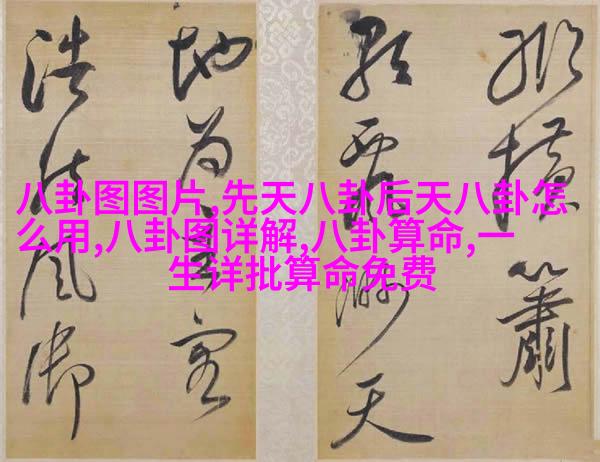 八卦图图片,先天八卦后天八卦怎
么用,八卦图详解,八卦算命,一
生详批算命免费
横箫
天
地为
浩风御